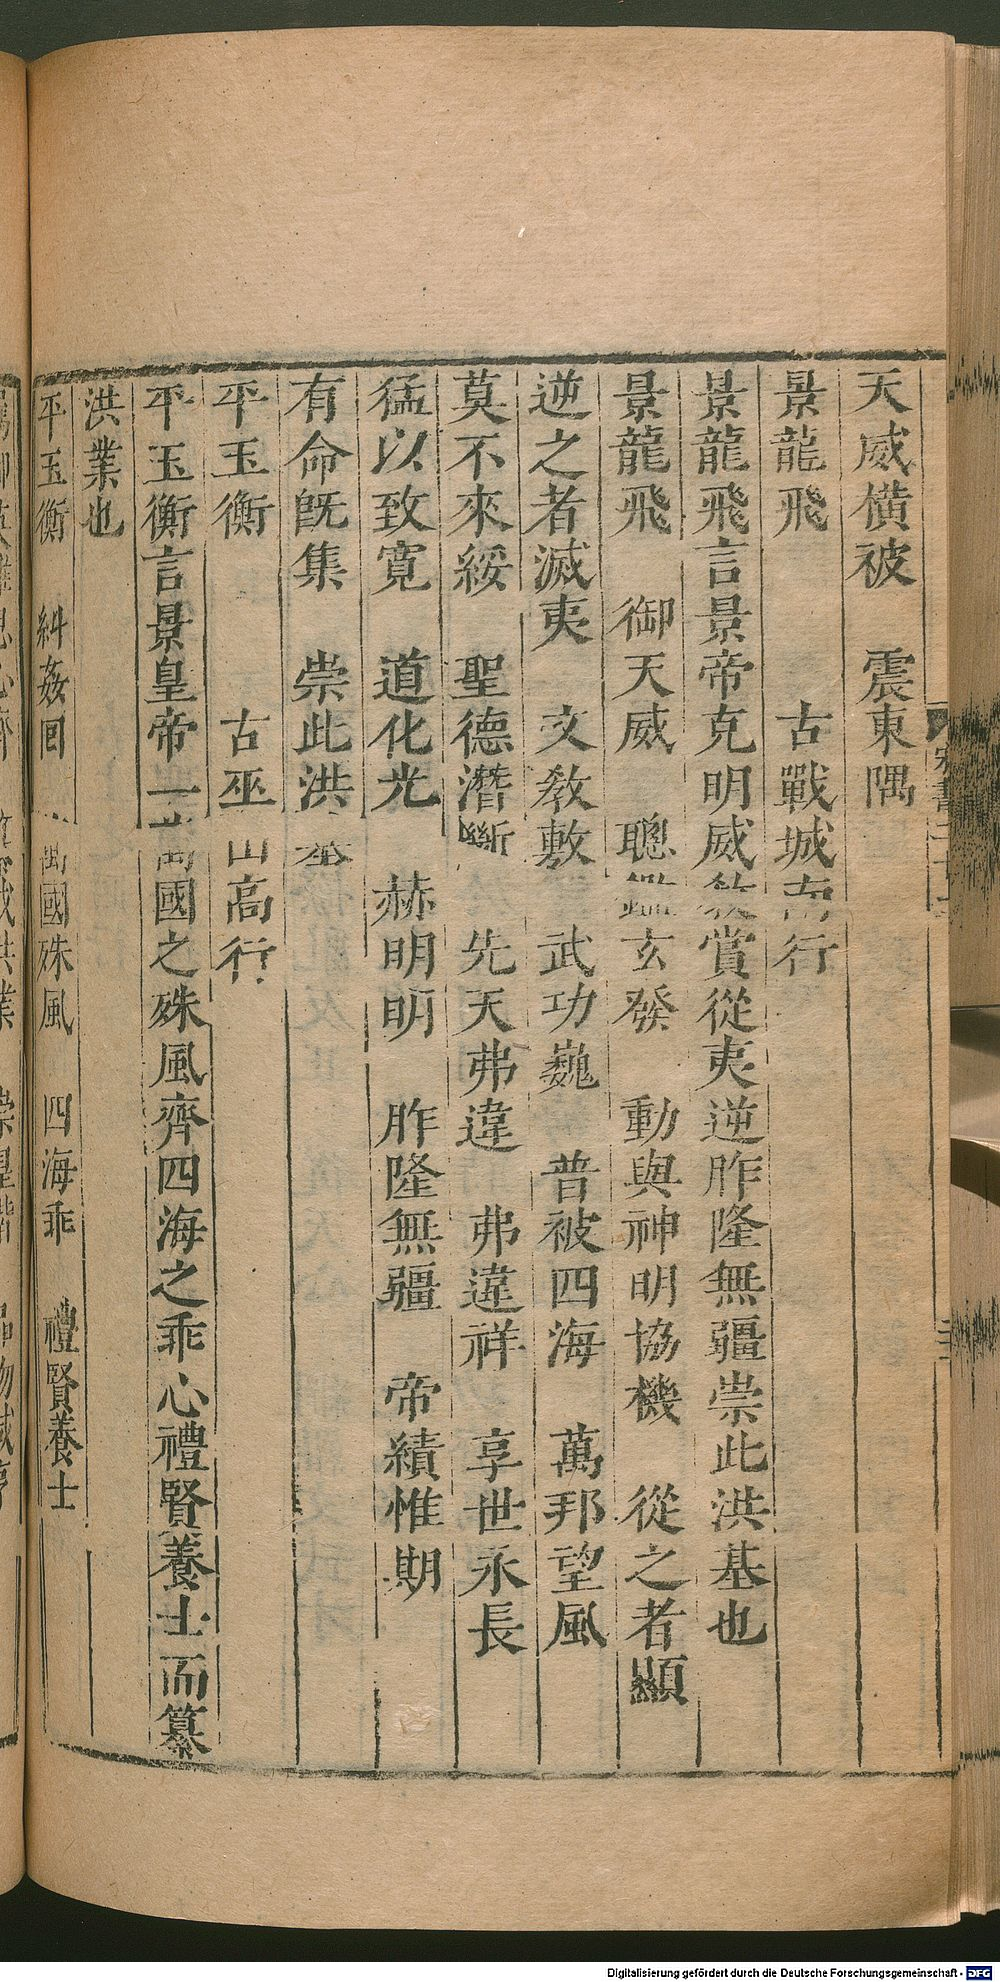 天威橫被　震東隅
景龍飛　　　古戰城南行
景龍飛言景帝克明威教賞從夷逆胙隆無疆崇此洪基也
景龍飛　御天威　聰鑒玄發　動與神明協機　從之者顯
逆之者滅夷　文教敷　武功巍　普被四海　萬邦望風
莫不來綏　聖德潛斷　先天弗違　弗違祥　享世永長
猛以致寬　道化光　赫明明　胙隆無疆　帝績惟期
有命既集　崇此洪基
平玉衡　　　古巫山高行
平玉衡言景皇帝一萬國之殊風齊四海之乖心禮賢養士而纂
洪業也
平玉衡　糾姦回　萬國殊風　四海乖　禮賢養士
宋書二十二
Digitalisierung gefördert durch die Deutsche Forschungsgemeinschaft - DFG